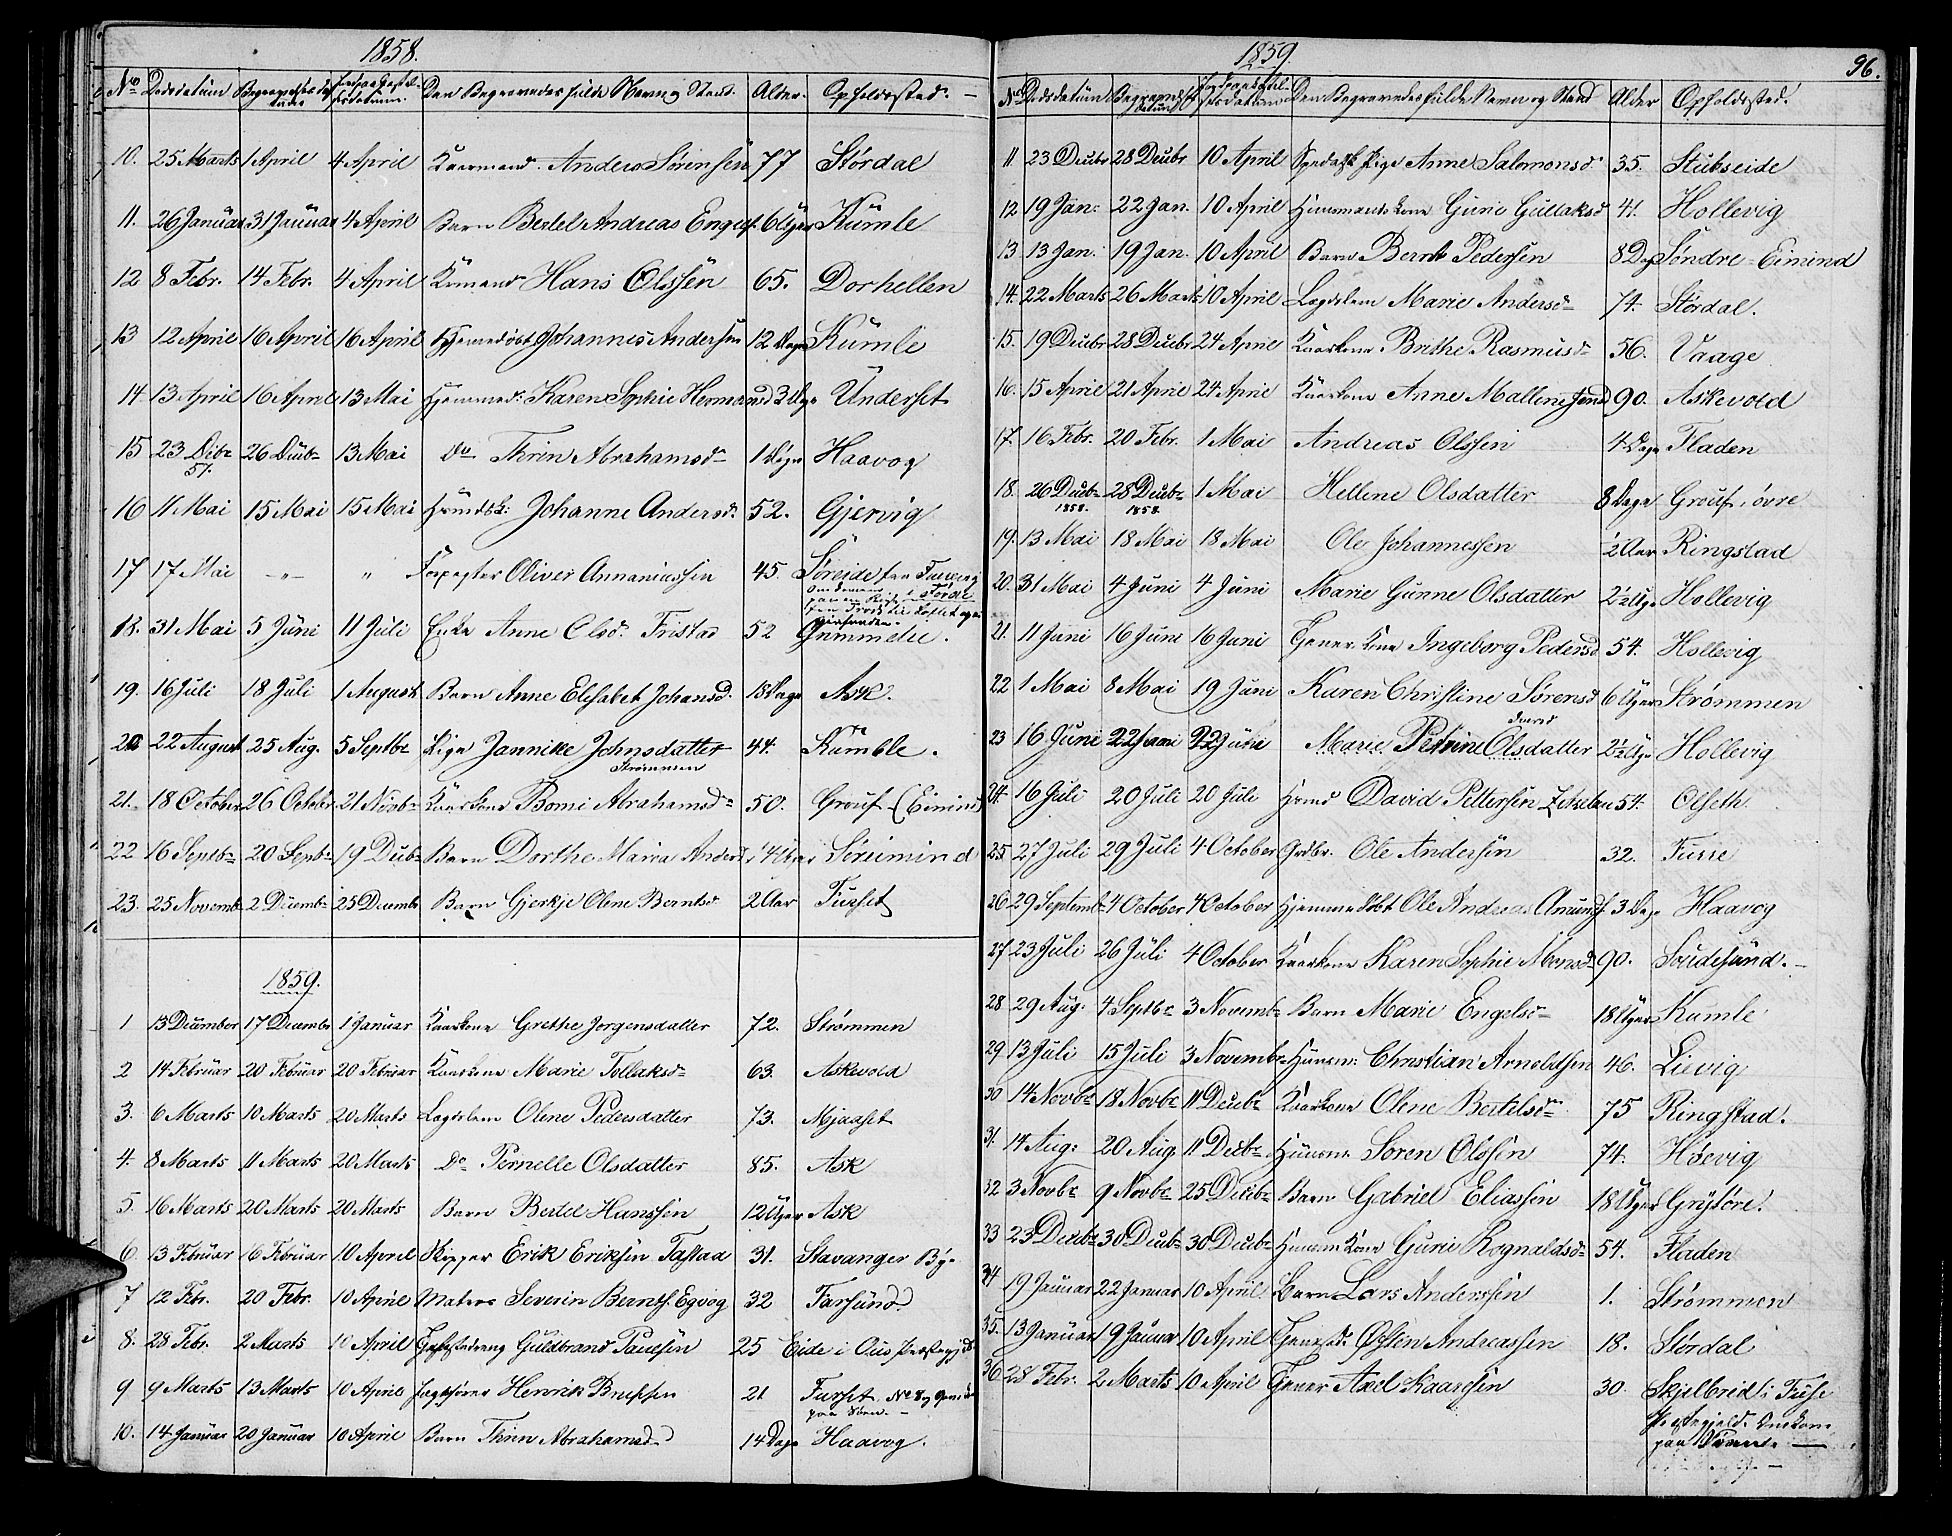 1858.
No Dødsdatum Begravelses Jordpaakastelsesdatum. Den Begravedes fulde Navn og Stand. Alder. Opholdssted.
10. 25 Marts 1 April 4 April Kaarmand. Anders Sørensen 77 Stordal
11. 26 Januar 31 Januar 4 April Barn Bertel Andreas Engels. 6 Uger Kumle
12 8 Febr. 14 Febr. 4 April Hans Olssen 65. Dorhellen
13 12 April 16 April 16 April Hjemmedøbt Johannes Andersen 12 Dage Kumle
14 13 April 16 April 13 Mai Hjemmed: Karen Sophie Hermansd 3 Underset
15 23 Dcbr 57. 26 Decbr 13 Mai do Thrin Abrahamsdr 1 Haavog
16 11 Mai 15 Mai 15 Mai Johanne Andersd. 52. Gjervig
17 17 Mai -"- " Oliver Annaniassen 45. Søreide
18. 31 Mai 5 Juni 11 Juli Enke Anne Olsd. Fristad 52
19. 16 Juli 18 Juli 1 August Barn Anne Elisabet Johansd. 18 Dage Ask.
20 22 August 25 Aug. 5 Septbr Pige Jannike Johnsdatter Strømmen 44. Kumble.
21. 18 October 26 October 21 Novbr Kaarkone Bomi Abrahamsdr 50. Grouf (Eimind)
22 16 Septbr 20 Septbr 19 Decbr Barn Dorthe Maria Andersd 14 Uger Søreimind
23. 25 Novemb 2 Decembr 25 Decembr Barn Gjerkje Olene Berntsd 2 Aar Furset
1859.
1 13 December 17 Decembr 1 Januar Kaarkone Grethe Jorgensdatter 72. Strømmen
2 14 Februar 20 Februar 20 Februar Kaarkone Marie Tollaksdr 63. Askevold
3. 6 Marts 10 Marts 20 Marts Lægdslem Olene Pedersdatter 73. Mjaaset
4. 8 Marts 11 Marts 20 Marts Do Pernelle Olsdatter 85. Ask
5. 16 Marts 20 Marts 20 Marts Barn Bertel Hanssen 12 Uger Ask
6. 13 Februar 16 Februar 10 April Skipper Erik Eriksen Tastad 31. Stavanger By
7 12 Febr. 20 Febr. 10 April Matros Severin Bernts. Egvog 32 Farsund
8. 28 Febr. 2 Marts 10 April Guldbrand Paulsen 25 Eide i Ous Præstegjd.
9 9 Marts 13 Marts 10 April Henrik 21 Furset. No 8 og 9 paa Søen.
10. 14 Januar 20 Januar 10 April Barn Thrin Abrahamsd 14 Dage Haavog.
1859.
96.
No Dødsdatum Begravelsesdatum Jordpaakastelsesdatum Den Begravedes fulde Navn og Stand Alder Opholdssted.
11 23 Decbr 28 Decbr 10 April Spedalsk Pige Anne Salomonsd. 35. Stubseide
12 19 Jan: 22 Jan. 10 April Husmands Kone Guri Gullaksd 41. Hollevig
13 13 Jan. 19 Jan. 10 April Barn Bernt Pedersen 8 Dg Søndre-Eimind
14. 22 Marts 26 Marts 10 April Lægdslem Marie Andersdr 74. Stordal.
15. 19 Decbr 28 Decbr 24 April Kaarkone. Brithe Rasmusdr 56. Vaage
16. 15 April 21 April 24 April Kaarkone Anne Mallene Jensd 90. Askevold
17. 16 Febr. 20 Febr. 1 Mai Andreas Olssen 4 Dage Fladen
18. 26 Decbr 1858. 28 Decbr 1858. 1 Mai Hellene Olsdatter 8 Dage Grouf, øvre
19. 13 Mai 18 Mai 18 Mai Ole Johannessen ½ Aar Ringstad
20. 31 Mai 4 Juni 4 Juni Marie Gunne Olsdatter 2½ Uge Hollevig
21. 11 Juni 16 Juni 16 Juni Kone Ingeborg Pedersd 54. Hollevig
22 1 Mai 8 Mai 19 Juni Karen Christine Sørensd 6 Uger Strømmen
23 16 Juni 22 Juni 22 Juni Marie Petrine Olsdatter 2½ Uge Hollevig
24. 16 Juli 20 Juli 20 Juli David Pettersen 54. Olseth.
25. 27 Juli 29 Juli 4 October Grdbr. Ole Andersen 32. Furre
26. 29 Septemb 4 October 4 October Hjemmedøbt Ole Andreas Amunds 3 Dage Haavog
27. 23 Juli 26 Juli 4 October Kaarkone Karen Sophie Monsdr 90. Soudesund.
28 29 Aug: 4 Septbr 3 Novembr Barn Marie Engelsdr 18 Uger Kumle
29 13 Juli 15 Juli 3 Novembr Husm: Christian Arnoldtsen 46. Lievig
30 14 Novbr 18 Novbr 11 Decbr Kaarkone Olene Bertelsdr 75 Ringstad.
31. 14 Aug: 20 Aug. 11 Decbr Husm: Søren Olssen 74. Høevig
32 3 Novbr 9 Novbr 25 Decbr Barn Gabriel Eliassen 18 Uger Grytøre.
33 23 Decbr 30 Decbr 30 Decbr Husm Kone Guri Rognaldsdr 54. Fladen
34 19 Januar 22 Januar 10 April Barn Lars Anderssen 1. Strømmen
35. 13 Januar 19 Januar 10 April Østen Andreassen 18. Stordal
36 28 Febr. 2 Marts 10 April Axel Kaaresen 30. Skjelbred i
Præstegjeld. Omkom
paa Søen.